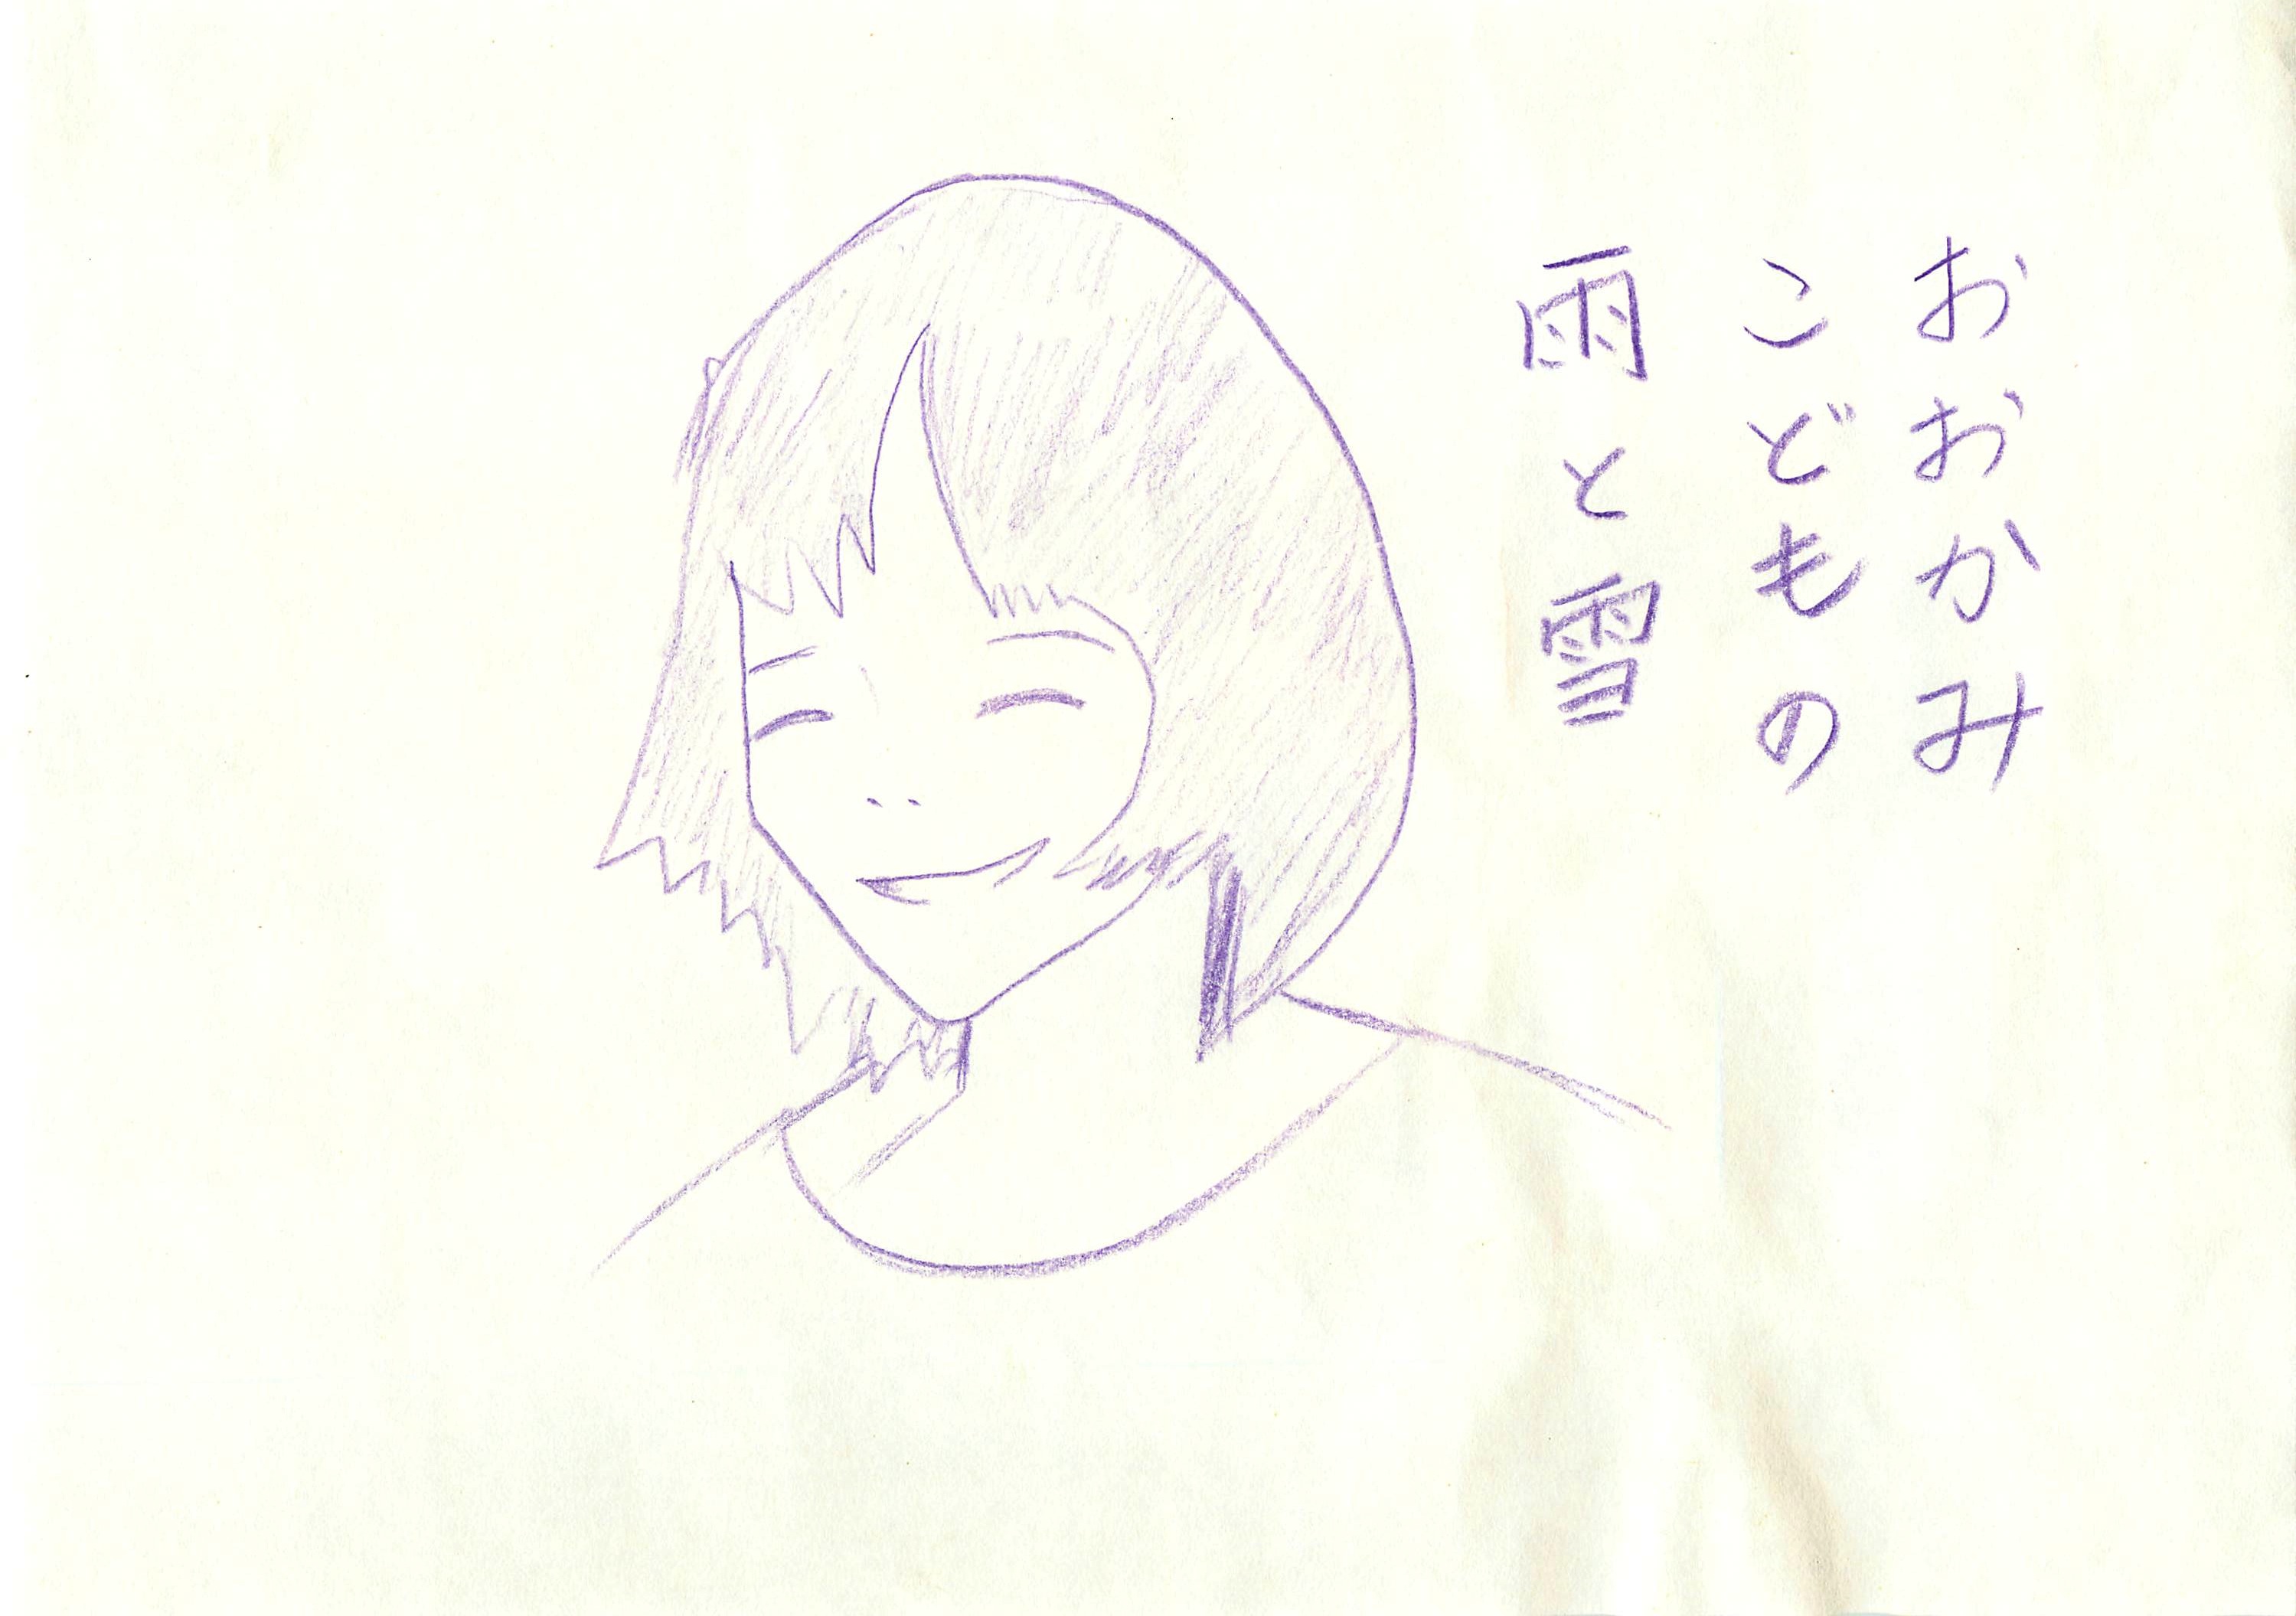 おおかみ
こどもの
雨と雪